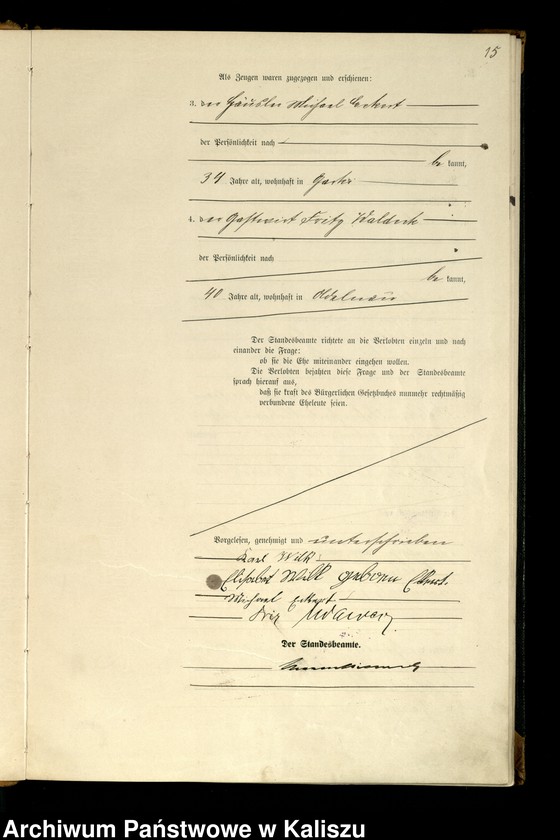 15
Als Zeugen waren zugezogen und erschienen:
3. der Häusler Michael Eckert
der Persönlichkeit nach
be kannt,
34 Jahre alt, wohnhaft in
4. der Gastwirt Fritz Waldeck
der Persönlichkeit nach
be kannt,
40 Jahre alt, wohnhaft in Adelnau
Der Standesbeamte richtete an die Verlobten einzeln und nach
einander die Frage:
ob sie die Ehe miteinander eingehen wollen.
Die Verlobten bejahten diese Frage und der Standesbeamte
sprach hierauf aus,
daß sie kraft des Bürgerlichen Gesetzbuches nunmehr rechtmäßig
verbundene Eheleute seien.
Vorgelesen, genehmigt und unterschrieben
Karl Wilk
Elisabet Wilk geboren Eckert.
Michael Eckert
Der Standesbeamte.
Archiwum Państwowe w Kaliszu